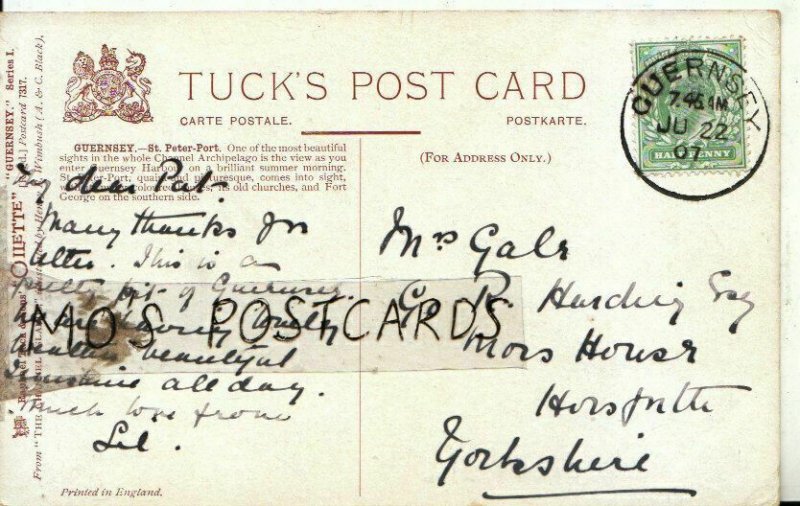 TUCK'S POST CARD
CARTE POSTALE.
POSTKARTE.
(FOR ADDRESS ONLY.)
GUERNSEY.—St. Peter-Port. One of the most beautiful
sights in the whole Channel Archipelago is the view as you
enter Guernsey Harbour on a brilliant summer morning.
St. Peter-Port, quaint and picturesque, comes into sight,
its old churches, and Fort
George on the southern side.
My dear Pat
Many thanks for
letter. This is a
pretty bit of Guernsey
lovely
weather beautiful
sunshine all day.
Much love from
Lil.
Mrs Gale
R. Harding Esq
Mors House
Horsforth
Yorkshire
GUERNSEY
7.45 AM
JU 22
07
HALFPENNY
MO'S POSTCARDS
"GUERNSEY." Series I.
Postcard 7317.
Wimbush (A. & C. Black).
OILETTE"
Raphael Tuck & Sons'
From "THE CHANNEL ISLANDS"
Printed in England.